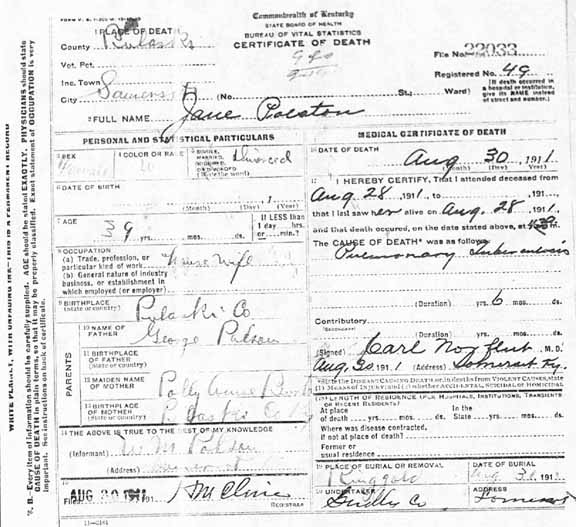 Commonwealth of Kentucky
STATE BOARD OF HEALTH
BUREAU OF VITAL STATISTICS
CERTIFICATE OF DEATH
1 PLACE OF DEATH
County Pulaski
Vot. Pct.
Inc. Town
City Somerset (No. St.; Ward)
File No. 22033
Registered No. 49
(If death occurred in a hospital or institution, give its NAME instead of street and number.)
2 FULL NAME Jane Polston
PERSONAL AND STATISTICAL PARTICULARS
3 SEX Female
4 COLOR OR RACE
5 SINGLE, MARRIED, WIDOWED, OR DIVORCED (Write the word) Divorced
6 DATE OF BIRTH
(Month) (Day) (Year)
7 AGE
39 yrs. mos. ds.
If LESS than 1 day hrs. or min.?
8 OCCUPATION
(a) Trade, profession, or particular kind of work House Wife
(b) General nature of industry business, or establishment in which employed (or employer)
9 BIRTHPLACE (State or country) Pulaski Co
10 NAME OF FATHER George
PARENTS
11 BIRTHPLACE OF FATHER (State or country)
12 MAIDEN NAME OF MOTHER
13 BIRTHPLACE OF MOTHER (State or country)
14 THE ABOVE IS TRUE TO THE BEST OF MY KNOWLEDGE
(Informant)
(Address)
15
Filed AUG 30 1911
REGISTRAR
11-3184
MEDICAL CERTIFICATE OF DEATH
16 DATE OF DEATH
Aug 30, 1911
(Month) (Day) (Year)
17 I HEREBY CERTIFY, That I attended deceased from
Aug 28, 1911, to , 191
that I last saw her alive on Aug. 28, 1911
and that death occured, on the date stated above, at m.
The CAUSE OF DEATH* was as follows:
Pulmonary Tuberculosis
(Duration) yrs. 6 mos. ds.
Contributory
(SECONDARY)
(Duration) yrs. mos. ds.
(Signed) Carl Norfleet M. D.
Aug. 30 1911 (Address) Somerset Ky.
*State the DISEASE CAUSING DEATH or, in deaths from VIOLENT CAUSES, state (1) MEANS OF INJURY; and (2) whether ACCIDENTAL, SUICIDAL or HOMICIDAL
18 LENGTH OF RESIDENCE (FOR HOSPITALS, INSTITUTIONS, TRANSIENTS OR RECENT RESIDENTS)
At place of death yrs. mos. ds. In the State yrs. mos. ds.
Where was disease contracted, if not at place of death?
Former or usual residence
19 PLACE OF BURIAL OR REMOVAL Ringgold
DATE OF BURIAL
20 UNDERTAKER
ADDRESS Somerset
WRITE PLAINLY, WITH UNFADING INK—THIS IS A PERMANENT RECORD
N. B.—Every item of information should be carefully supplied. AGE should be stated EXACTLY. PHYSICIANS should state
CAUSE OF DEATH in plain terms, so that it may be properly classified. Exact statement of OCCUPATION is very
important. See instructions on back of certificate.